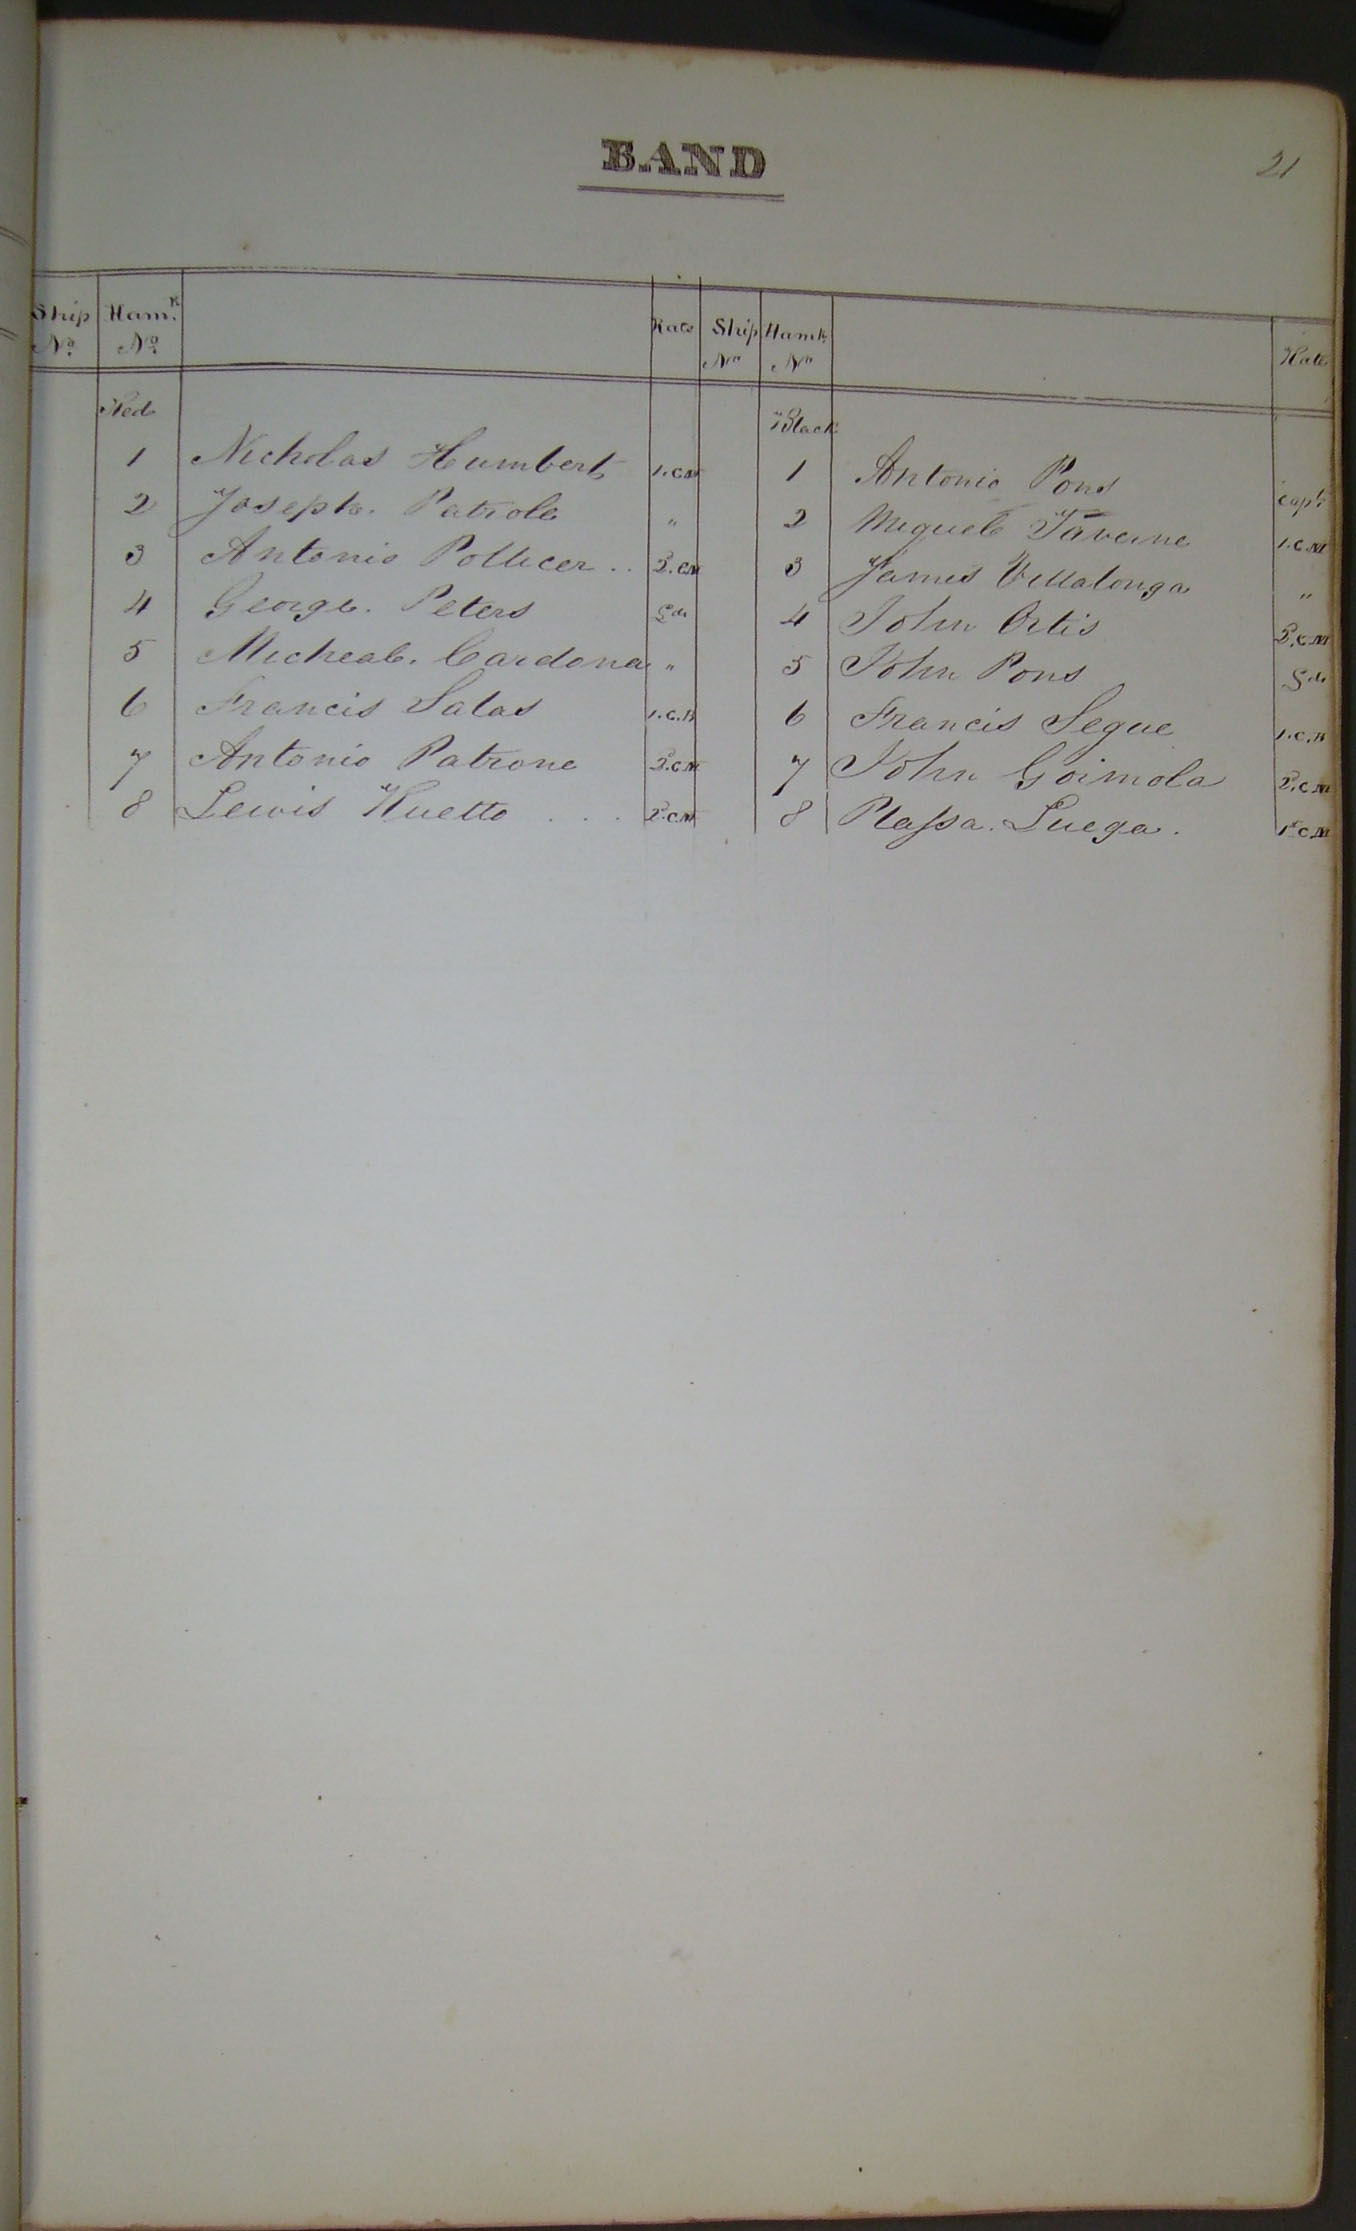 BAND
21
Ship No. Ham.k No. Rate Ship No. Hamk. No. Rate
Red Black
1 Nicholas Humbert 1.C.M 1 Antonio Pons Capt.
2 Joseph. Patrole " 2 Miguel Taverne 1.C.M
3 Antonio Pollicer .. 2.C.M 3 James Villalonga "
4 George. Peters 4 John Ortis 2.C.M
5 Micheal. Cardona " 5 John Pons
6 Francis Salas 1.C.B 6 Francis Segue 1.C.B
7 Antonio Patrone 2.C.M 7 John Goimola 2.C.M
8 Lewis Huetto . . . 2.C.M 8 Plassa. Luega. 1st C.M